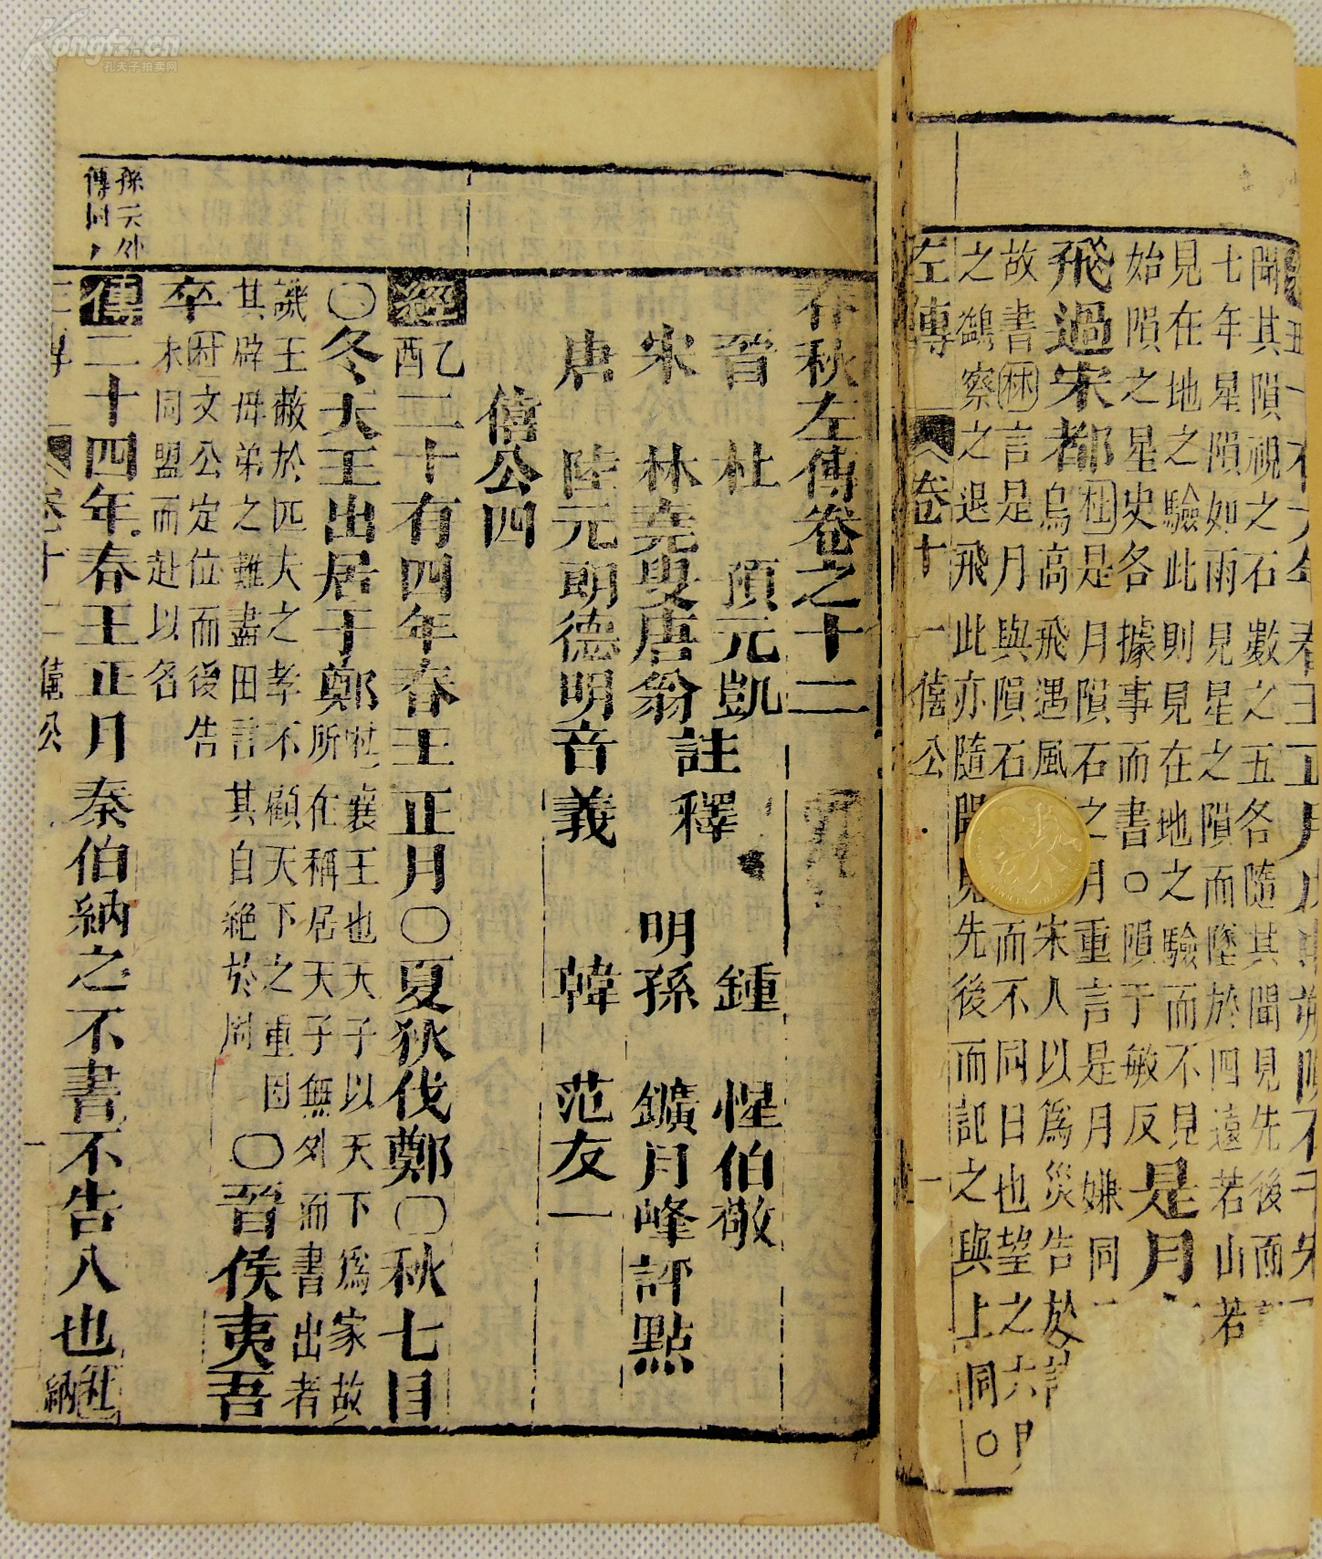 Kongfz.cn
孔夫子拍卖网
聞其隕視之石數之五各隨其聞見先後而
七年星隕如雨見星之隕而墜於四遠若山若
見在地之驗此則見在地之驗而不見
始隕之星史各據事而書○隕于敏反是月
飛過宋都杜是月隕石之月重言是月嫌同
烏高飛遇風宋人以為災告於
故書林言是月與隕石而不同日也望之六
之鷁察之退飛此亦隨聞見先後而記之與上同○
左傳 卷十一 僖公 一
春秋左傳卷之十二
晉 杜 預元凱 註釋 明 鍾 惺伯敬 評點
宋 林堯叟唐翁 孫 鑛月峰
唐 陸元朗德明音義 韓 范友一
僖公四
經乙酉二十有四年春王正月○夏狄伐鄭○秋七月
○冬天王出居于鄭杜襄王也天子以天下為家故所在稱居天子無外而書出者
譏王蔽於匹夫之孝不顧天下之重因其辟母弟之難書出言其自絕於周○晉侯夷吾
卒杜文公定位而後告未同盟而赴以名
傳二十四年春王正月秦伯納之不書不告入也杜納
孫云外傳同
卷十二 僖公 一